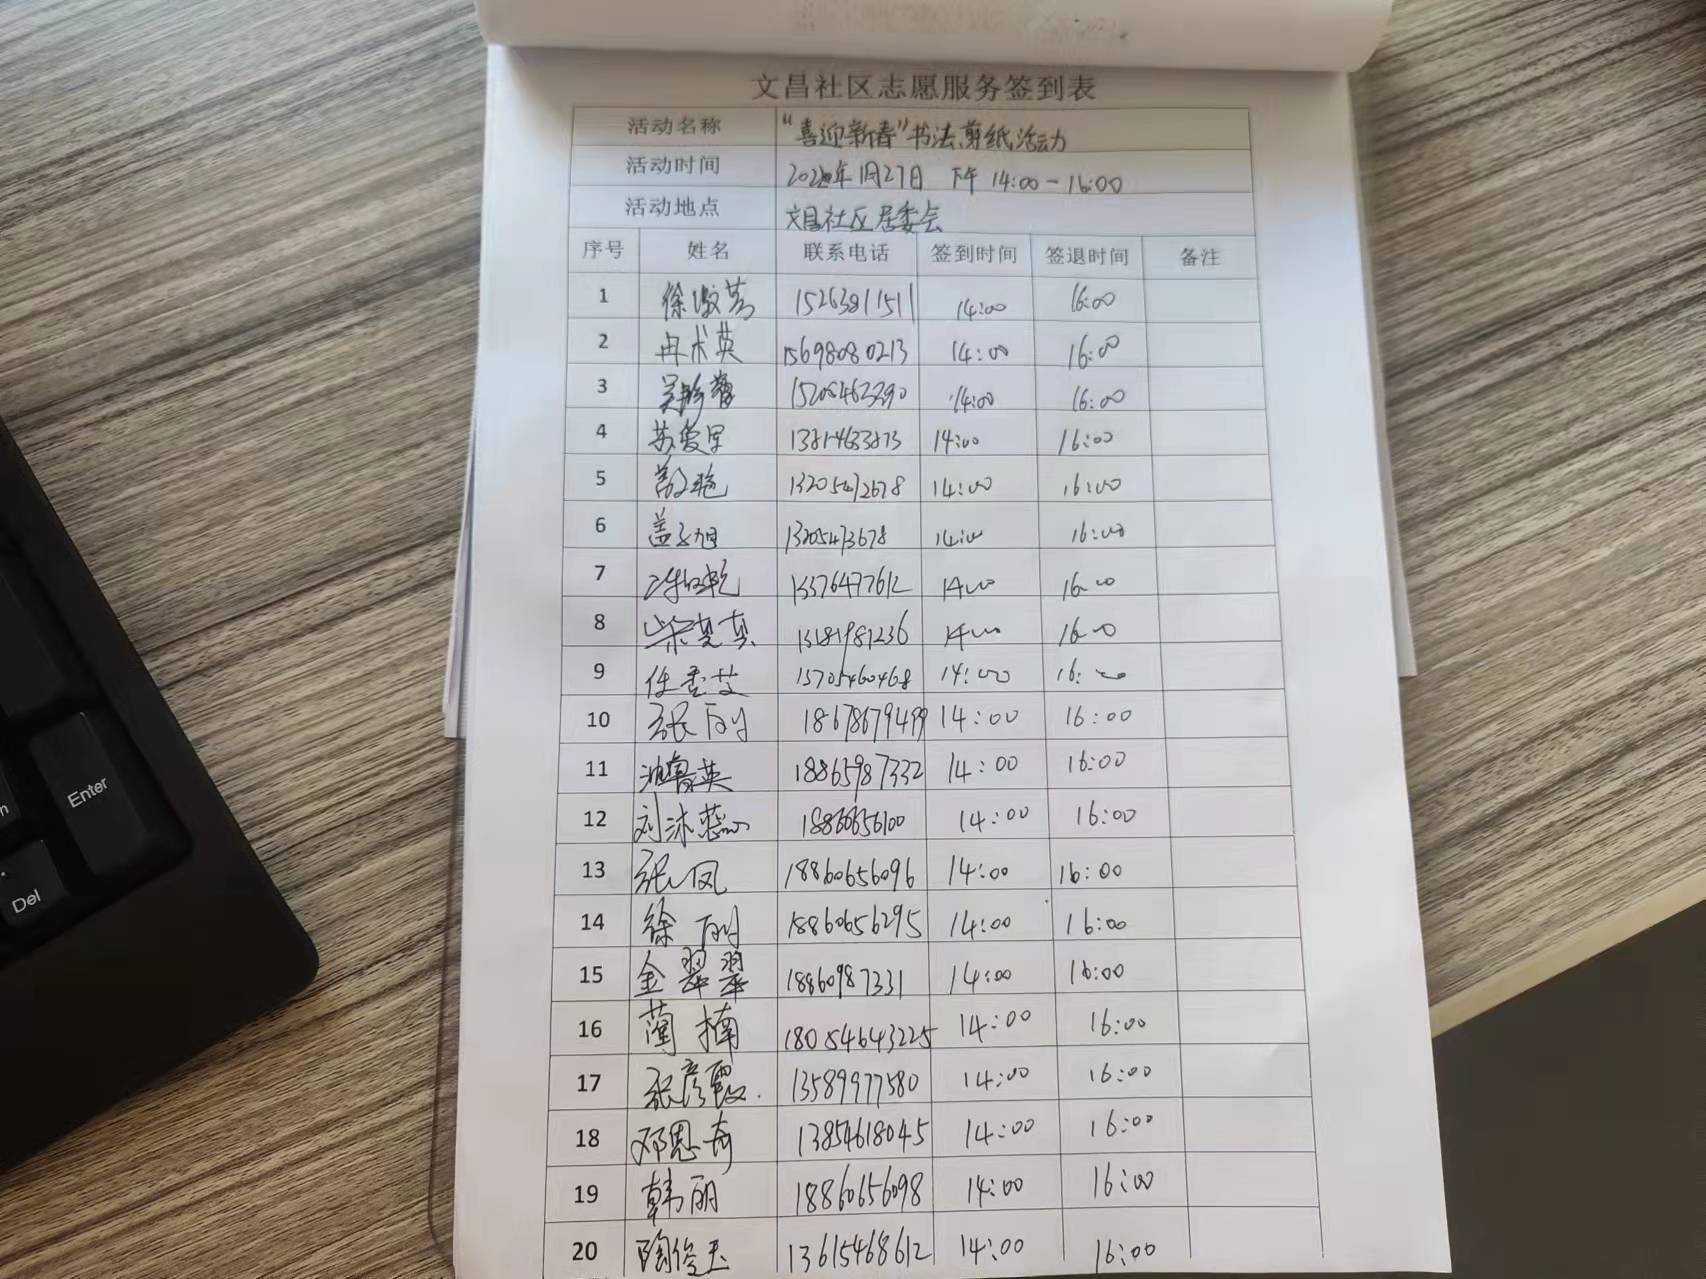 文昌社区志愿服务签到表
活动名称 “喜迎新春”书法、剪纸活动
活动时间 年1月27日 下午 14:00-16:00
活动地点 文昌社区居委会
序号 姓名 联系电话 签到时间 签退时间 备注
1 15263811511 14:00 16:00
2 冉术英 15698080213 14:00 16:00
3 15205463290 14:00 16:00
4 13814633873 14:00 16:00
5 14:00 16:00
6 盖子旭 13205473678 14:00 16:00
7 13376477612 14:00 16:00
8 13181981236 14:00 16:00
9 任秀艾 13705460468 14:00 16:00
10 张丽 18678679499 14:00 16:00
11 18865987332 14:00 16:00
12 刘沐蕊 18860656100 14:00 16:00
13 张凤 18860656096 14:00 16:00
14 徐丽 18860656295 14:00 16:00
15 金翠翠 18860987331 14:00 16:00
16 蔺楠 18054643225 14:00 16:00
17 张彦霞 13589977580 14:00 16:00
18 邓恩奇 13854618045 14:00 16:00
19 韩丽 18860656098 14:00 16:00
20 陶俊玉 13615468612 14:00 16:00
Enter
Del